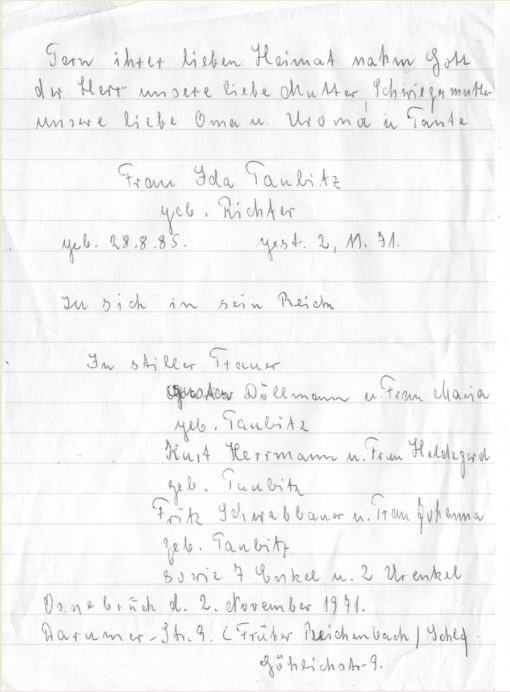 Fern ihrer lieben Heimat nahm Gott
der Herr unsere liebe Mutter, Schwiegermutter
unsere liebe Oma u. Uroma u Tante
Frau Ida Taubitz
geb. Richter
geb. 28.8.85. gest. 2, 11. 71.
zu sich in sein Reich
In stiller Trauer
Döllmann u. Frau Maria
geb. Taubitz
Kurt Herrmann u. Frau Hildegard
geb. Taubitz
Fritz Schwabbauer u. Frau Johanna
geb. Taubitz
sowie 7 Enkel u. 2 Urenkel
Osnabrück d. 2. November 1971.
Darumer-Str. 9. (Früher Reichenbach / Schles.